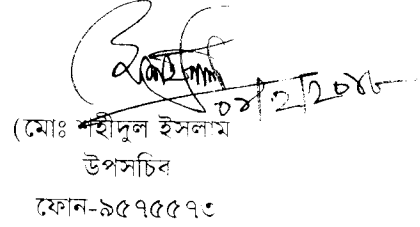 ০৪/২/২০১৮
(মোঃ শহীদুল ইসলাম
উপসচিব
ফোন-৯৫৭৫৫৭৩